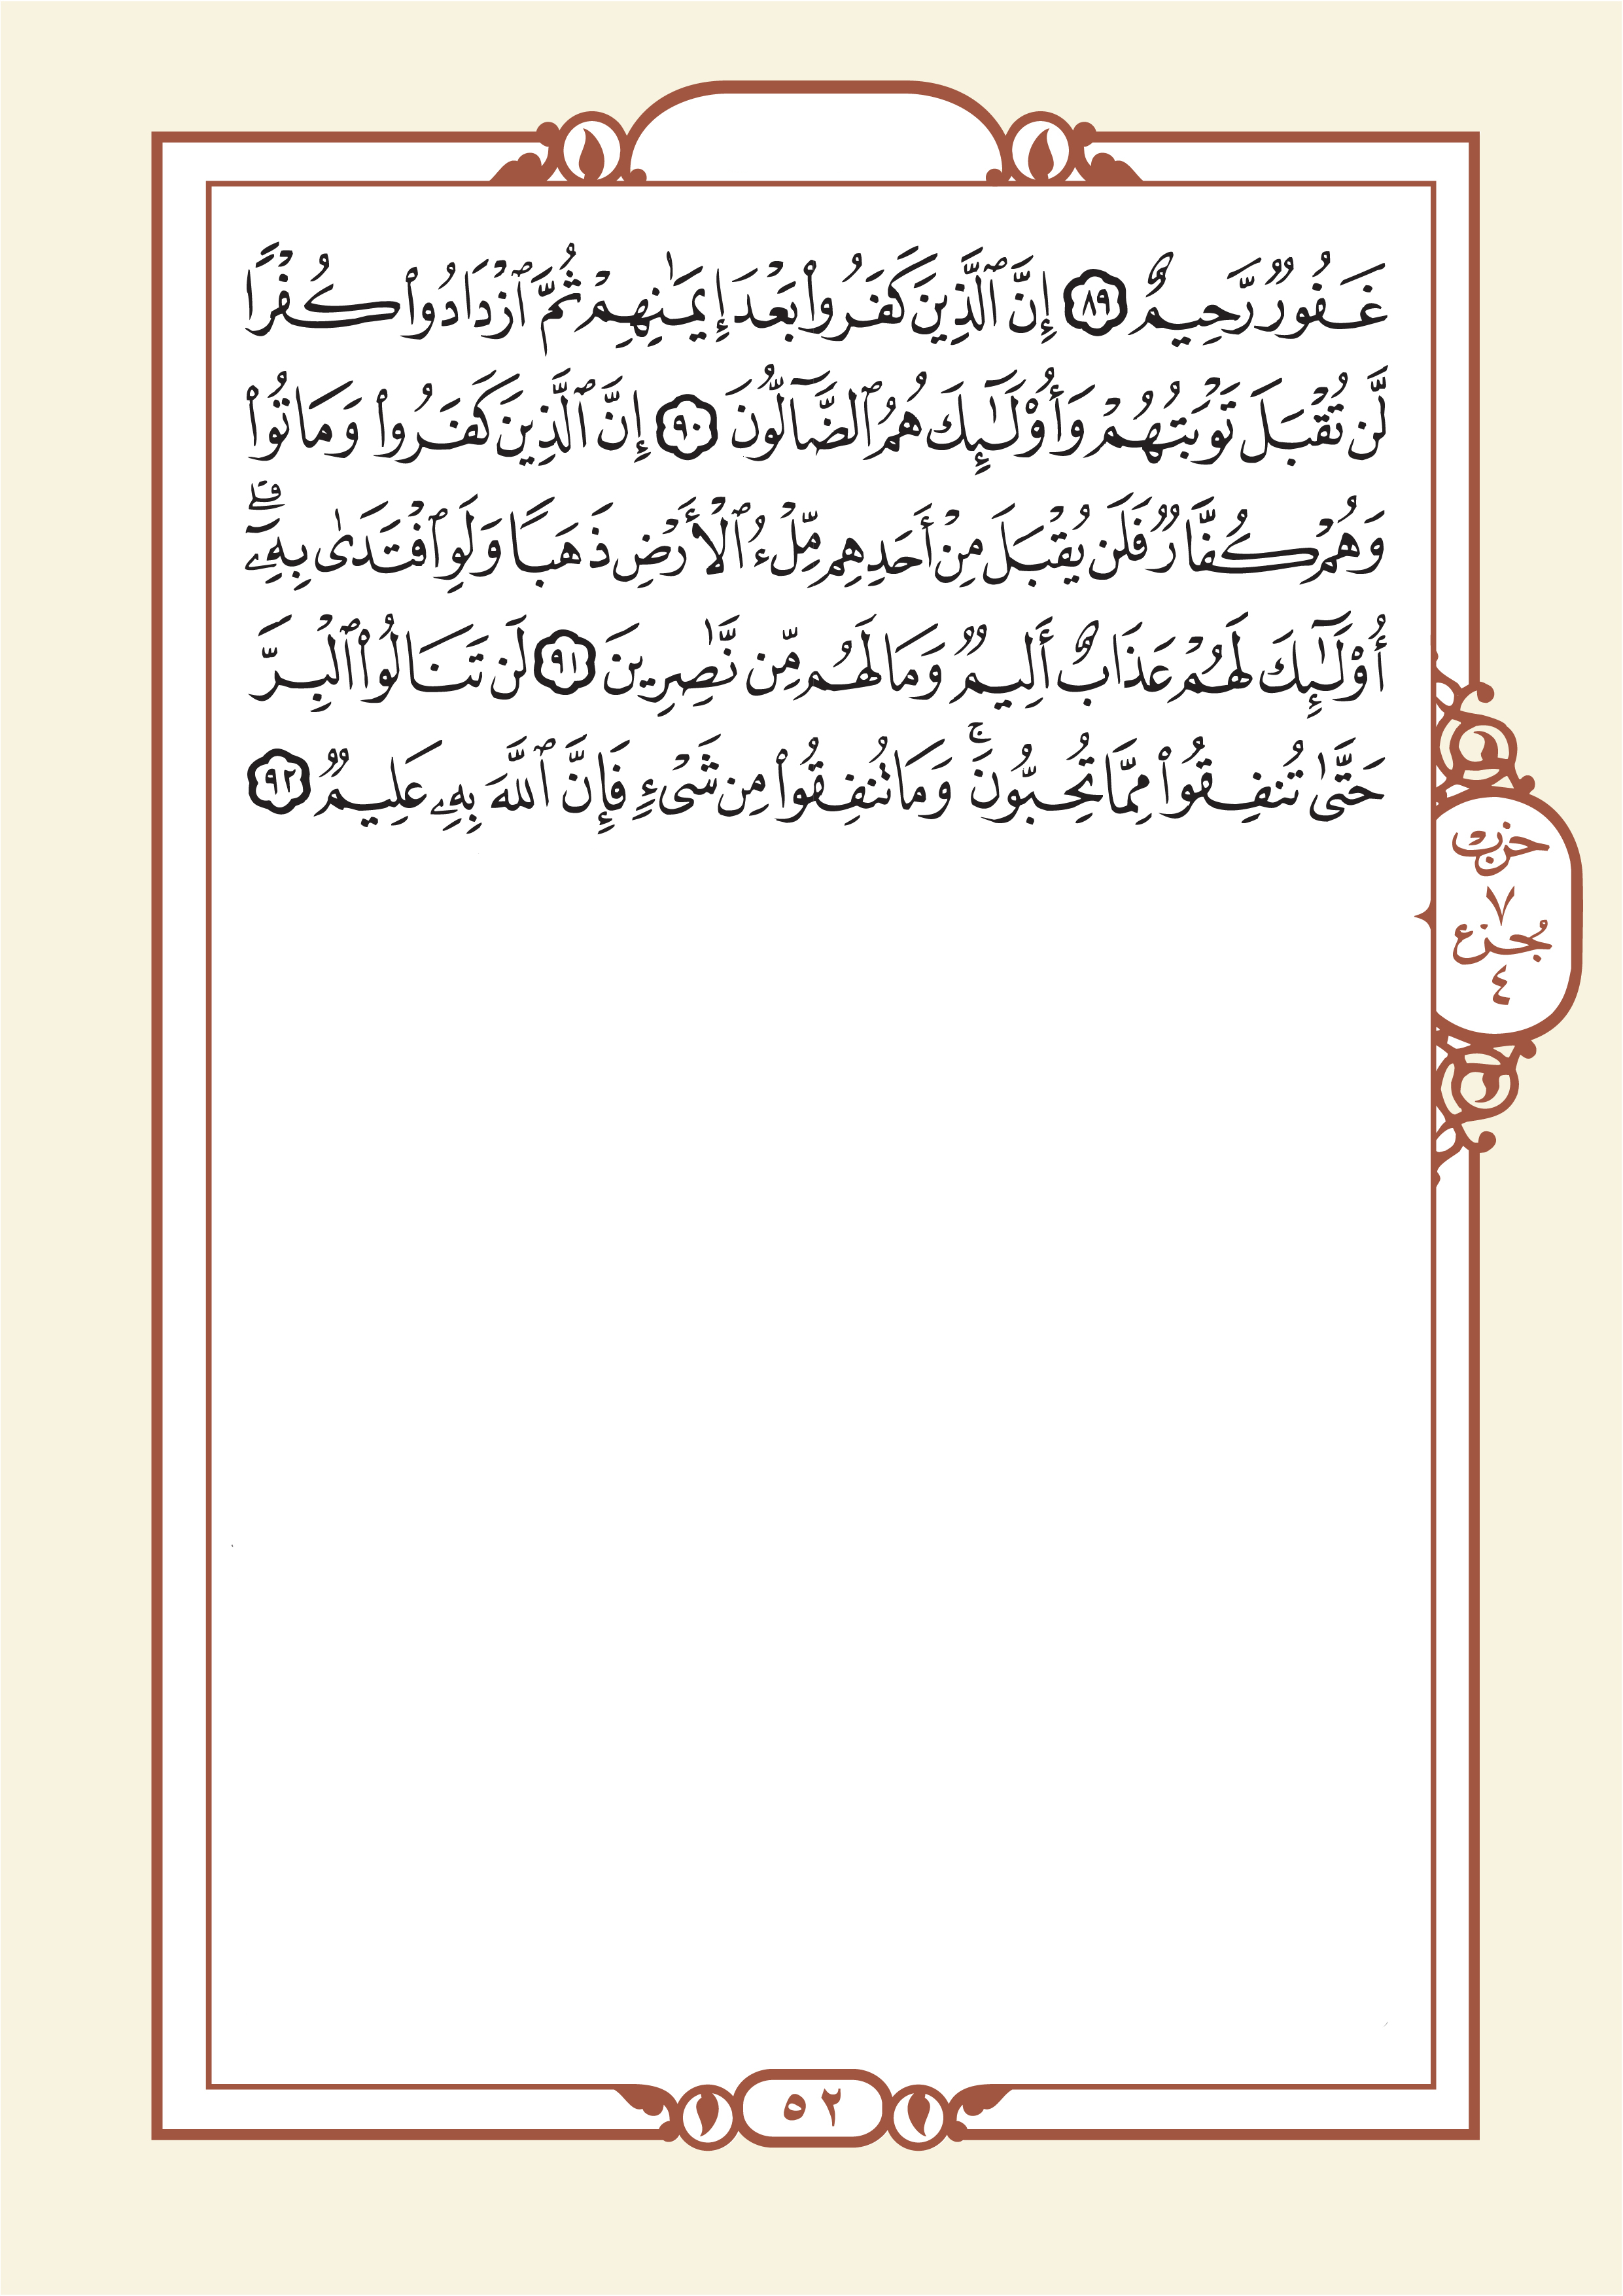 غَفُورٌ رَّحِيمٌ ٨٩ إِنَّ ٱلَّذِينَ كَفَرُوا۟ بَعْدَ إِيمَـٰنِهِمْ ثُمَّ ٱزْدَادُوا۟ كُفْرًا
لَّن تُقْبَلَ تَوْبَتُهُمْ وَأُو۟لَـٰٓئِكَ هُمُ ٱلضَّآلُّونَ ٩٠ إِنَّ ٱلَّذِينَ كَفَرُوا۟ وَمَاتُوا۟
وَهُمْ كُفَّارٌ فَلَن يُقْبَلَ مِنْ أَحَدِهِم مِّلْءُ ٱلْأَرْضِ ذَهَبًا وَلَوِ ٱفْتَدَىٰ بِهِۦٓ ۗ
أُو۟لَـٰٓئِكَ لَهُمْ عَذَابٌ أَلِيمٌ وَمَا لَهُم مِّن نَّـٰصِرِينَ ٩١ لَن تَنَالُوا۟ ٱلْبِرَّ
حَتَّىٰ تُنفِقُوا۟ مِمَّا تُحِبُّونَ ۚ وَمَا تُنفِقُوا۟ مِن شَىْءٍ فَإِنَّ ٱللَّهَ بِهِۦ عَلِيمٌ ٩٢
حزب
٧
جزء
٤
٥٢